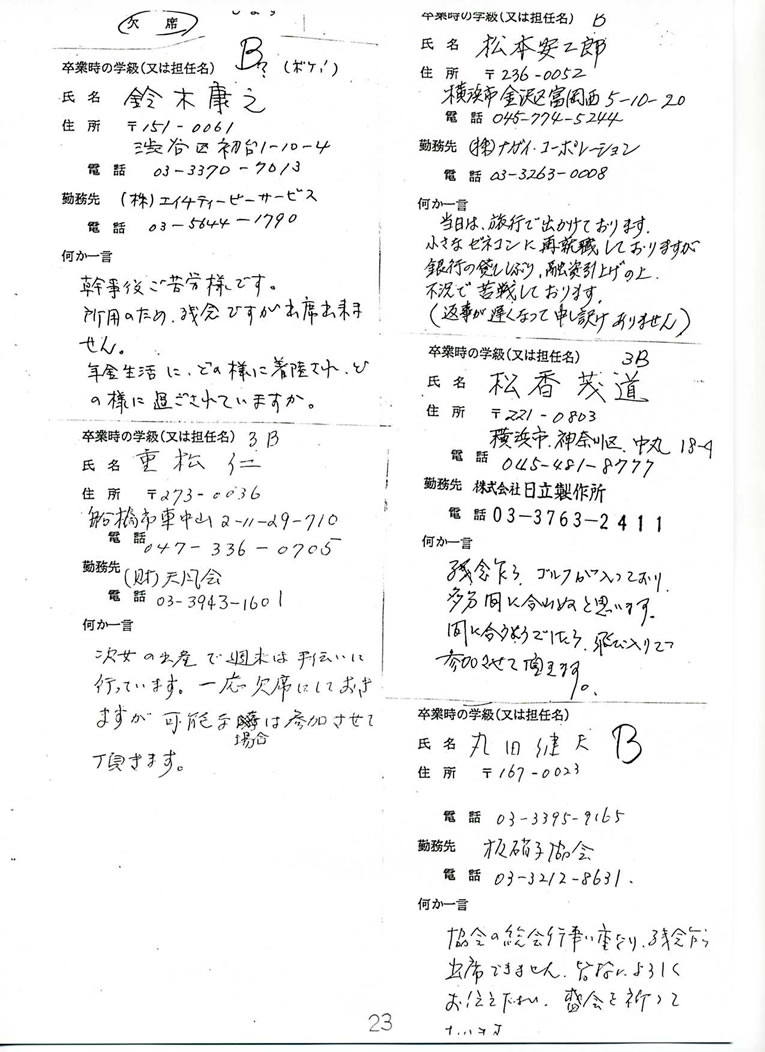 欠席
卒業時の学級(又は担任名) B?(ボケ!)
氏名 鈴木康之
住所 〒151-0061
渋谷区初台1-10-4
電話 03-3370-7013
勤務先 (株)エイチティーピーサービス
電話 03-5644-1790
何か一言
幹事役ご苦労様です。
所用のため、残念ですが出席出来ま
せん。
年金生活に、どの様に着陸され、ど
の様に過ごされていますか。
卒業時の学級(又は担任名) 3B
氏名 重松仁
住所 〒273-0036
船橋市東中山2-11-29-710
電話 047-336-0705
勤務先 (財)天風会
電話 03-3943-1601
何か一言
次女の出産で週末は手伝いに
行っています。一応欠席にしておき
ますが可能な場合は参加させて
頂きます。
卒業時の学級(又は担任名) B
氏名 松本安二郎
住所 〒236-0052
横浜市金沢区富岡西5-10-20
電話 045-774-5244
勤務先 (株)ナガイ・コーポレーション
電話 03-3263-0008
何か一言
当日は、旅行で出かけております。
小さなゼネコンに再就職しておりますが
銀行の貸ししぶり、融資引上げの上、
不況で苦戦しております。
(返事が遅くなって申し訳ありません)
卒業時の学級(又は担任名) 3B
氏名 松香茂道
住所 〒221-0803
横浜市.神奈川区.中丸18-4
電話 045-481-8777
勤務先 株式会社日立製作所
電話 03-3763-2411
何か一言
残念乍ら、ゴルフが入っており、
多分間に合わぬと思います。
間に合うようでしたら、飛び入りにて
参加させて頂きます。
卒業時の学級(又は担任名)
氏名 丸田健夫 B
住所 〒167-0023
電話 03-3395-9165
勤務先 板硝子協会
電話 03-3212-8631.
何か一言
協会の総会行事に重なり、残念乍ら
出席できません。皆様によろしく
お伝え下さい。盛会を祈って
23